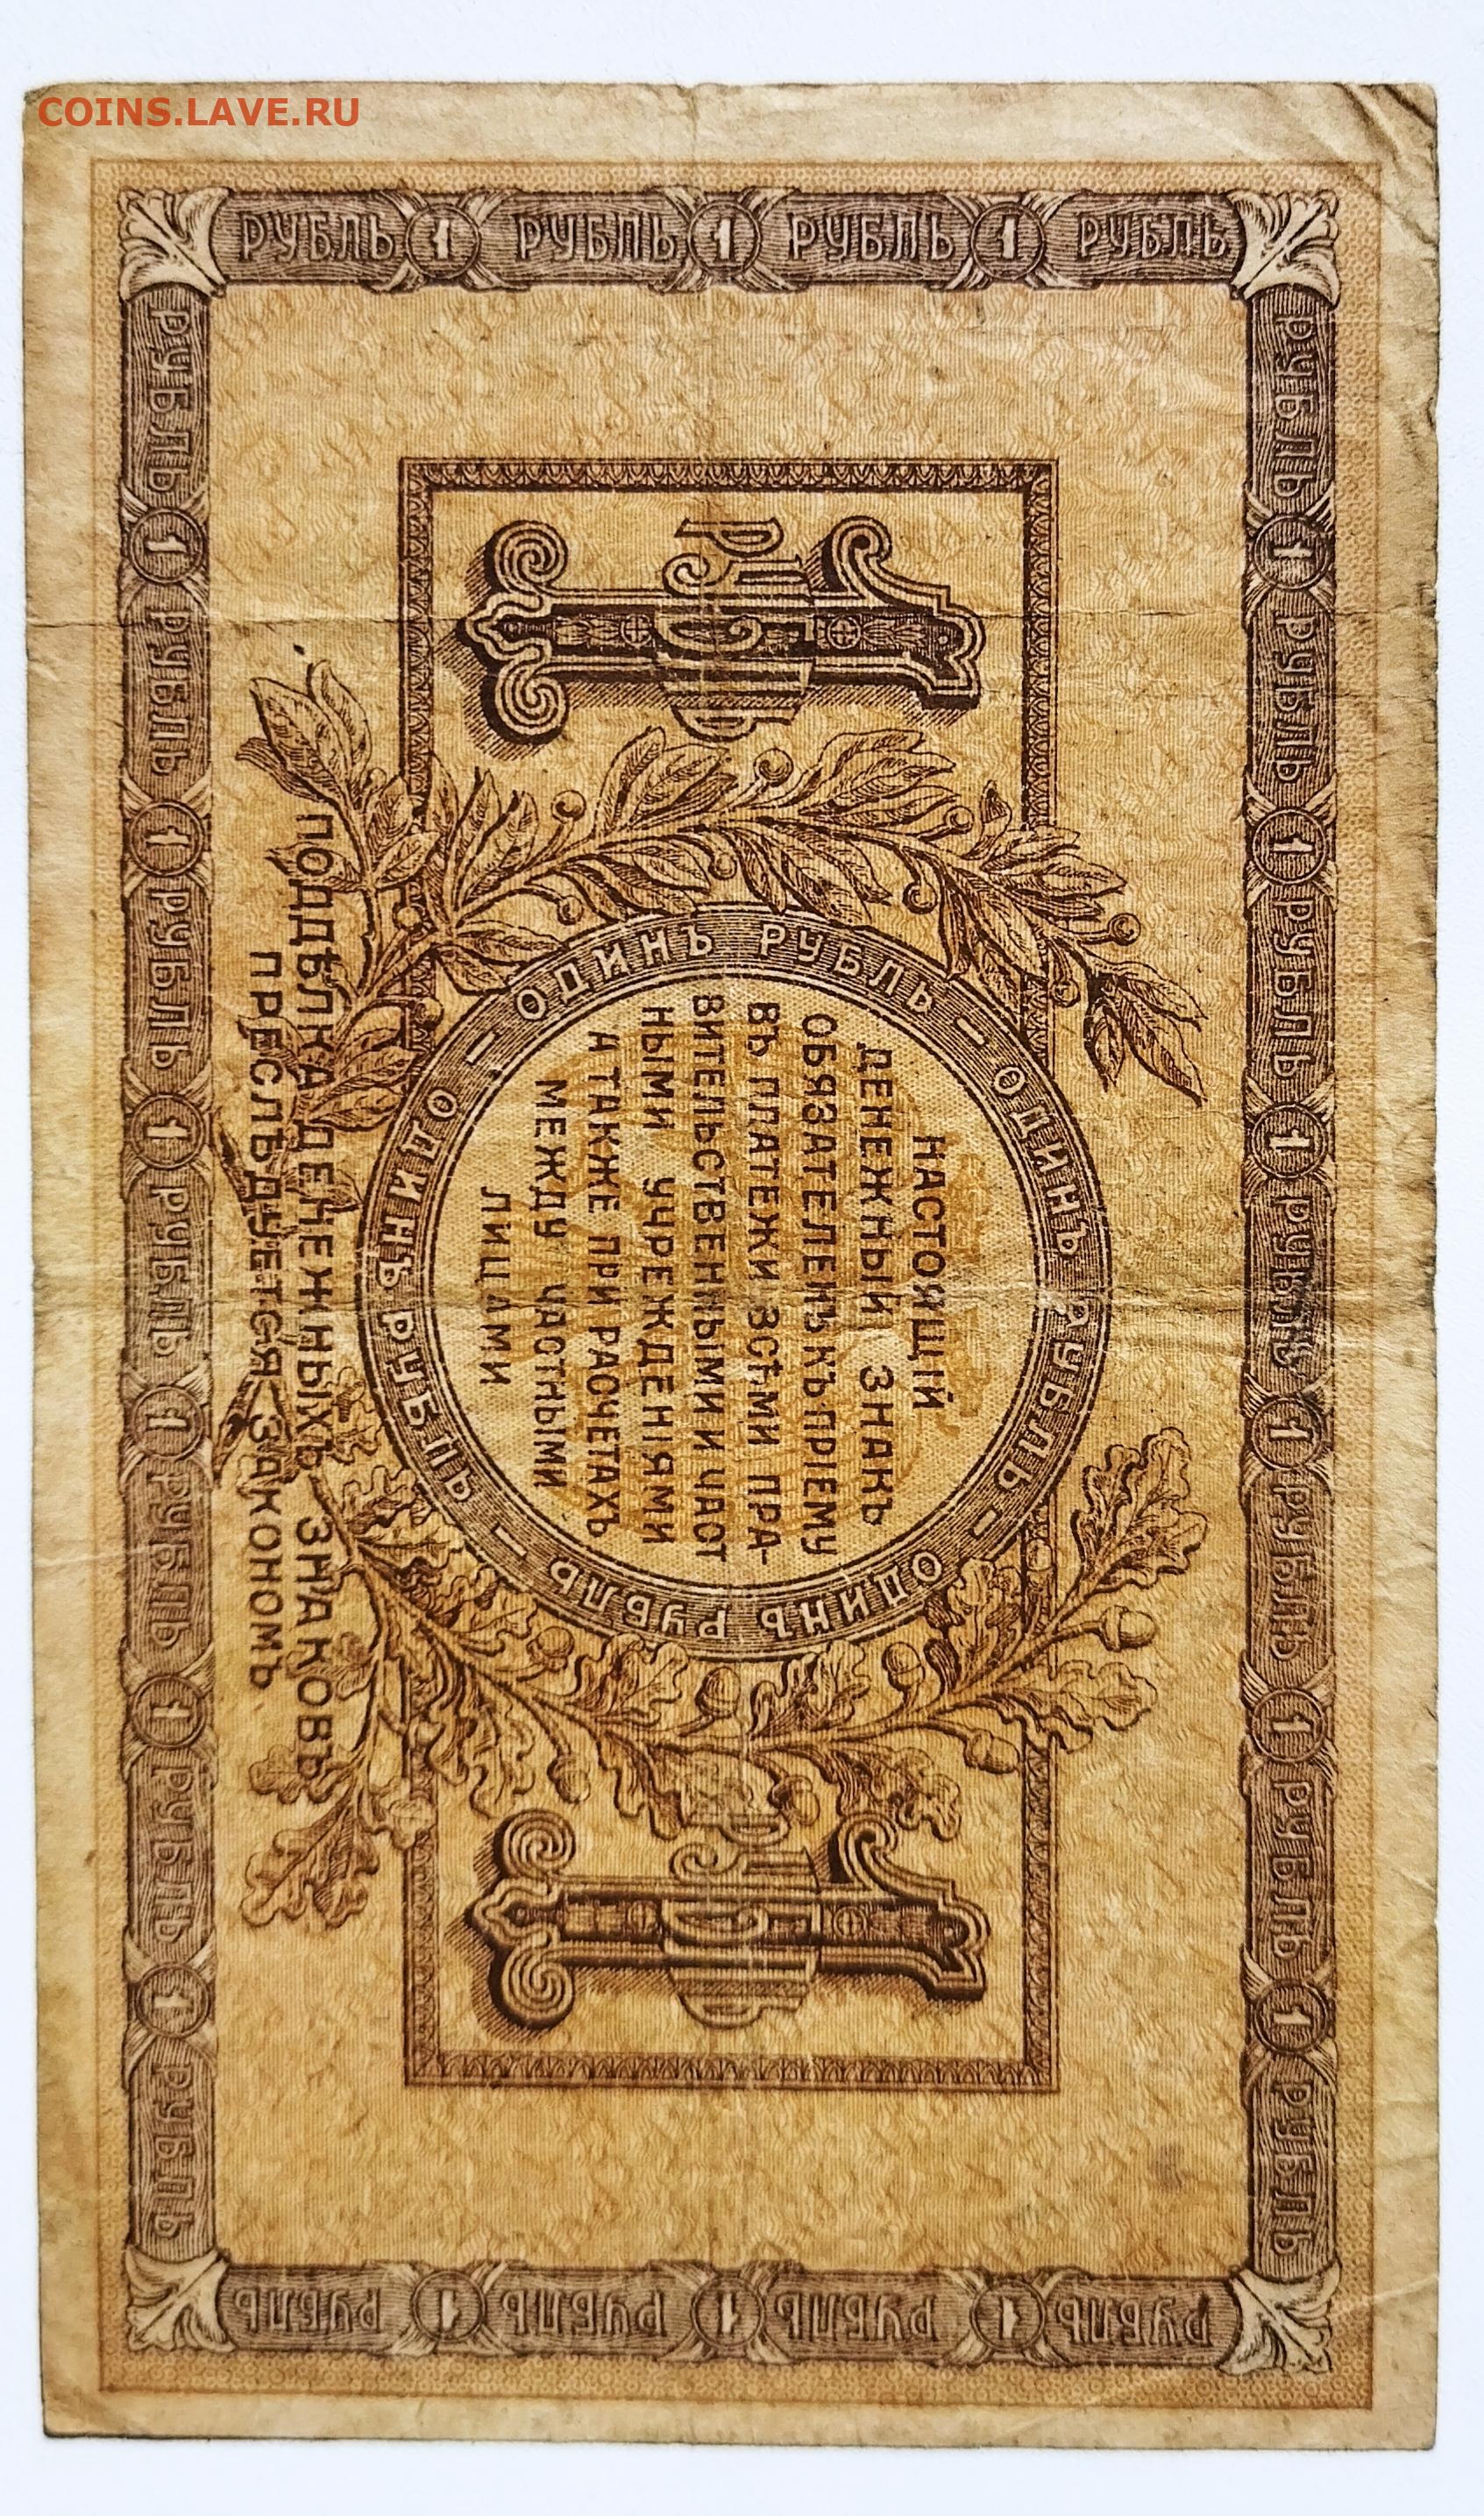 COINS.LAVE.RU
РУБЛЬ 1 РУБЛЬ 1 РУБЛЬ 1 РУБЛЬ
РУБЛЬ 1 РУБЛЬ 1 РУБЛЬ 1 РУБЛЬ 1 РУБЛЬ 1 РУБЛЬ 1 РУБЛЬ
1 РУБЛЬ
ОДИНЪ РУБЛЬ — ОДИНЪ РУБЛЬ — ОДИНЪ РУБЛЬ — ОДИНЪ РУБЛЬ —
НАСТОЯЩІЙ
ДЕНЕЖНЫЙ ЗНАКЪ
ОБЯЗАТЕЛЕНЪ КЪ ПРІЕМУ
ВЪ ПЛАТЕЖИ ВСѢМИ ПРА-
ВИТЕЛЬСТВЕННЫМИ И ЧАСТ
НЫМИ УЧРЕЖДЕНІЯМИ
А ТАКЖЕ ПРИ РАСЧЕТАХЪ
МЕЖДУ ЧАСТНЫМИ
ЛИЦАМИ
1 РУБЛЬ
ПОДДѢЛКА ДЕНЕЖНЫХЪ ЗНАКОВЪ
ПРЕСЛѢДУЕТСЯ ЗАКОНОМЪ
РУБЛЬ 1 РУБЛЬ 1 РУБЛЬ 1 РУБЛЬ 1 РУБЛЬ 1 РУБЛЬ 1 РУБЛЬ
РУБЛЬ 1 РУБЛЬ 1 РУБЛЬ 1 РУБЛЬ